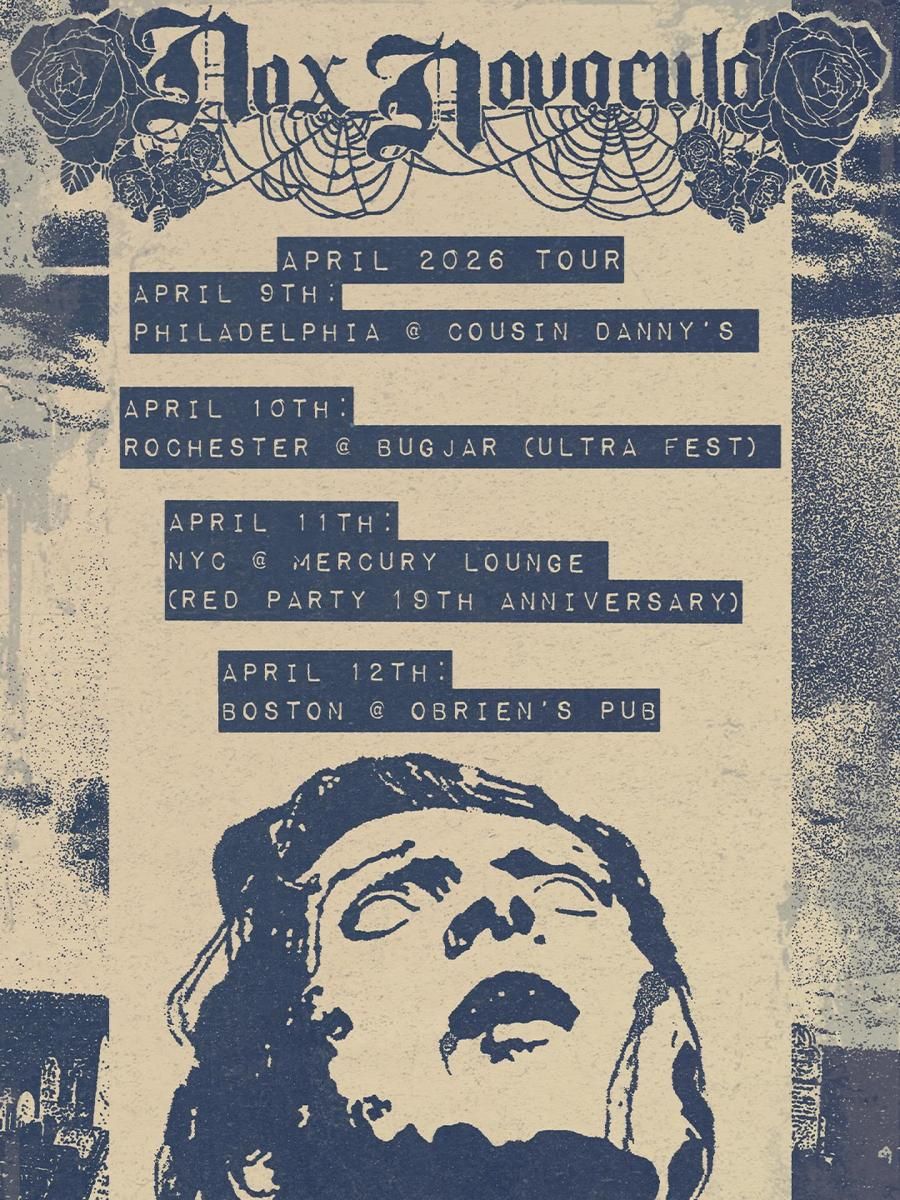 Nox Novacula
APRIL 2026 TOUR
APRIL 9TH:
PHILADELPHIA @ COUSIN DANNY'S
APRIL 10TH:
ROCHESTER @ BUGJAR (ULTRA FEST)
APRIL 11TH:
NYC @ MERCURY LOUNGE
(RED PARTY 19TH ANNIVERSARY)
APRIL 12TH:
BOSTON @ OBRIEN'S PUB